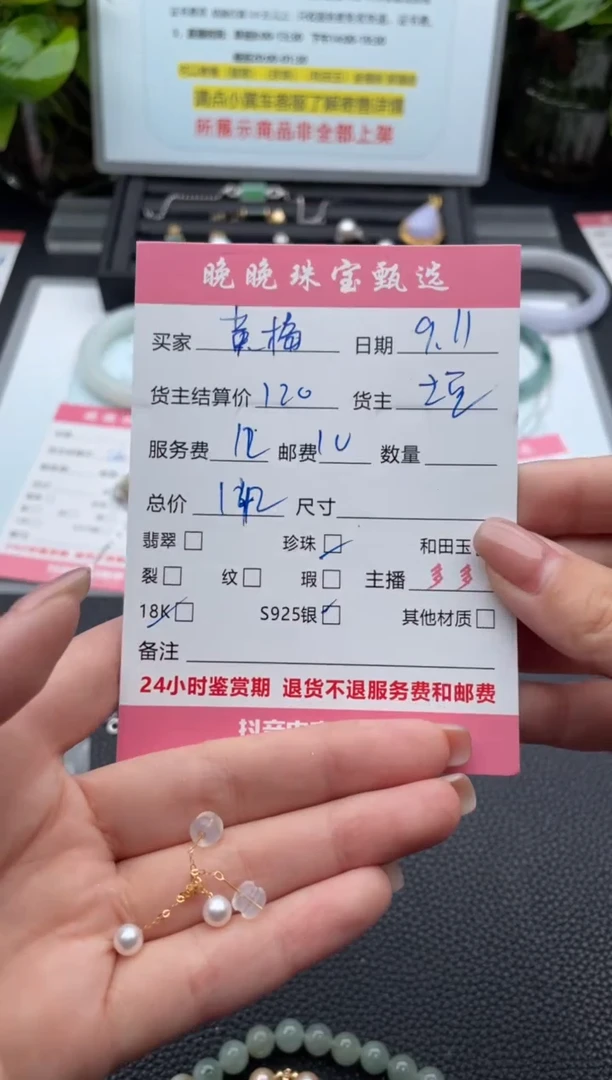 请点小黄车客服了解寄售详情
所展示商品非全部上架
晚晚珠宝甄选
买家 黄梅 日期 9.11
货主结算价 120 货主
服务费 12 邮费 10 数量
总价 142 尺寸
翡翠 珍珠 和田玉
裂 纹 瑕 主播 多多
18K S925银 其他材质
备注
24小时鉴赏期 退货不退服务费和邮费